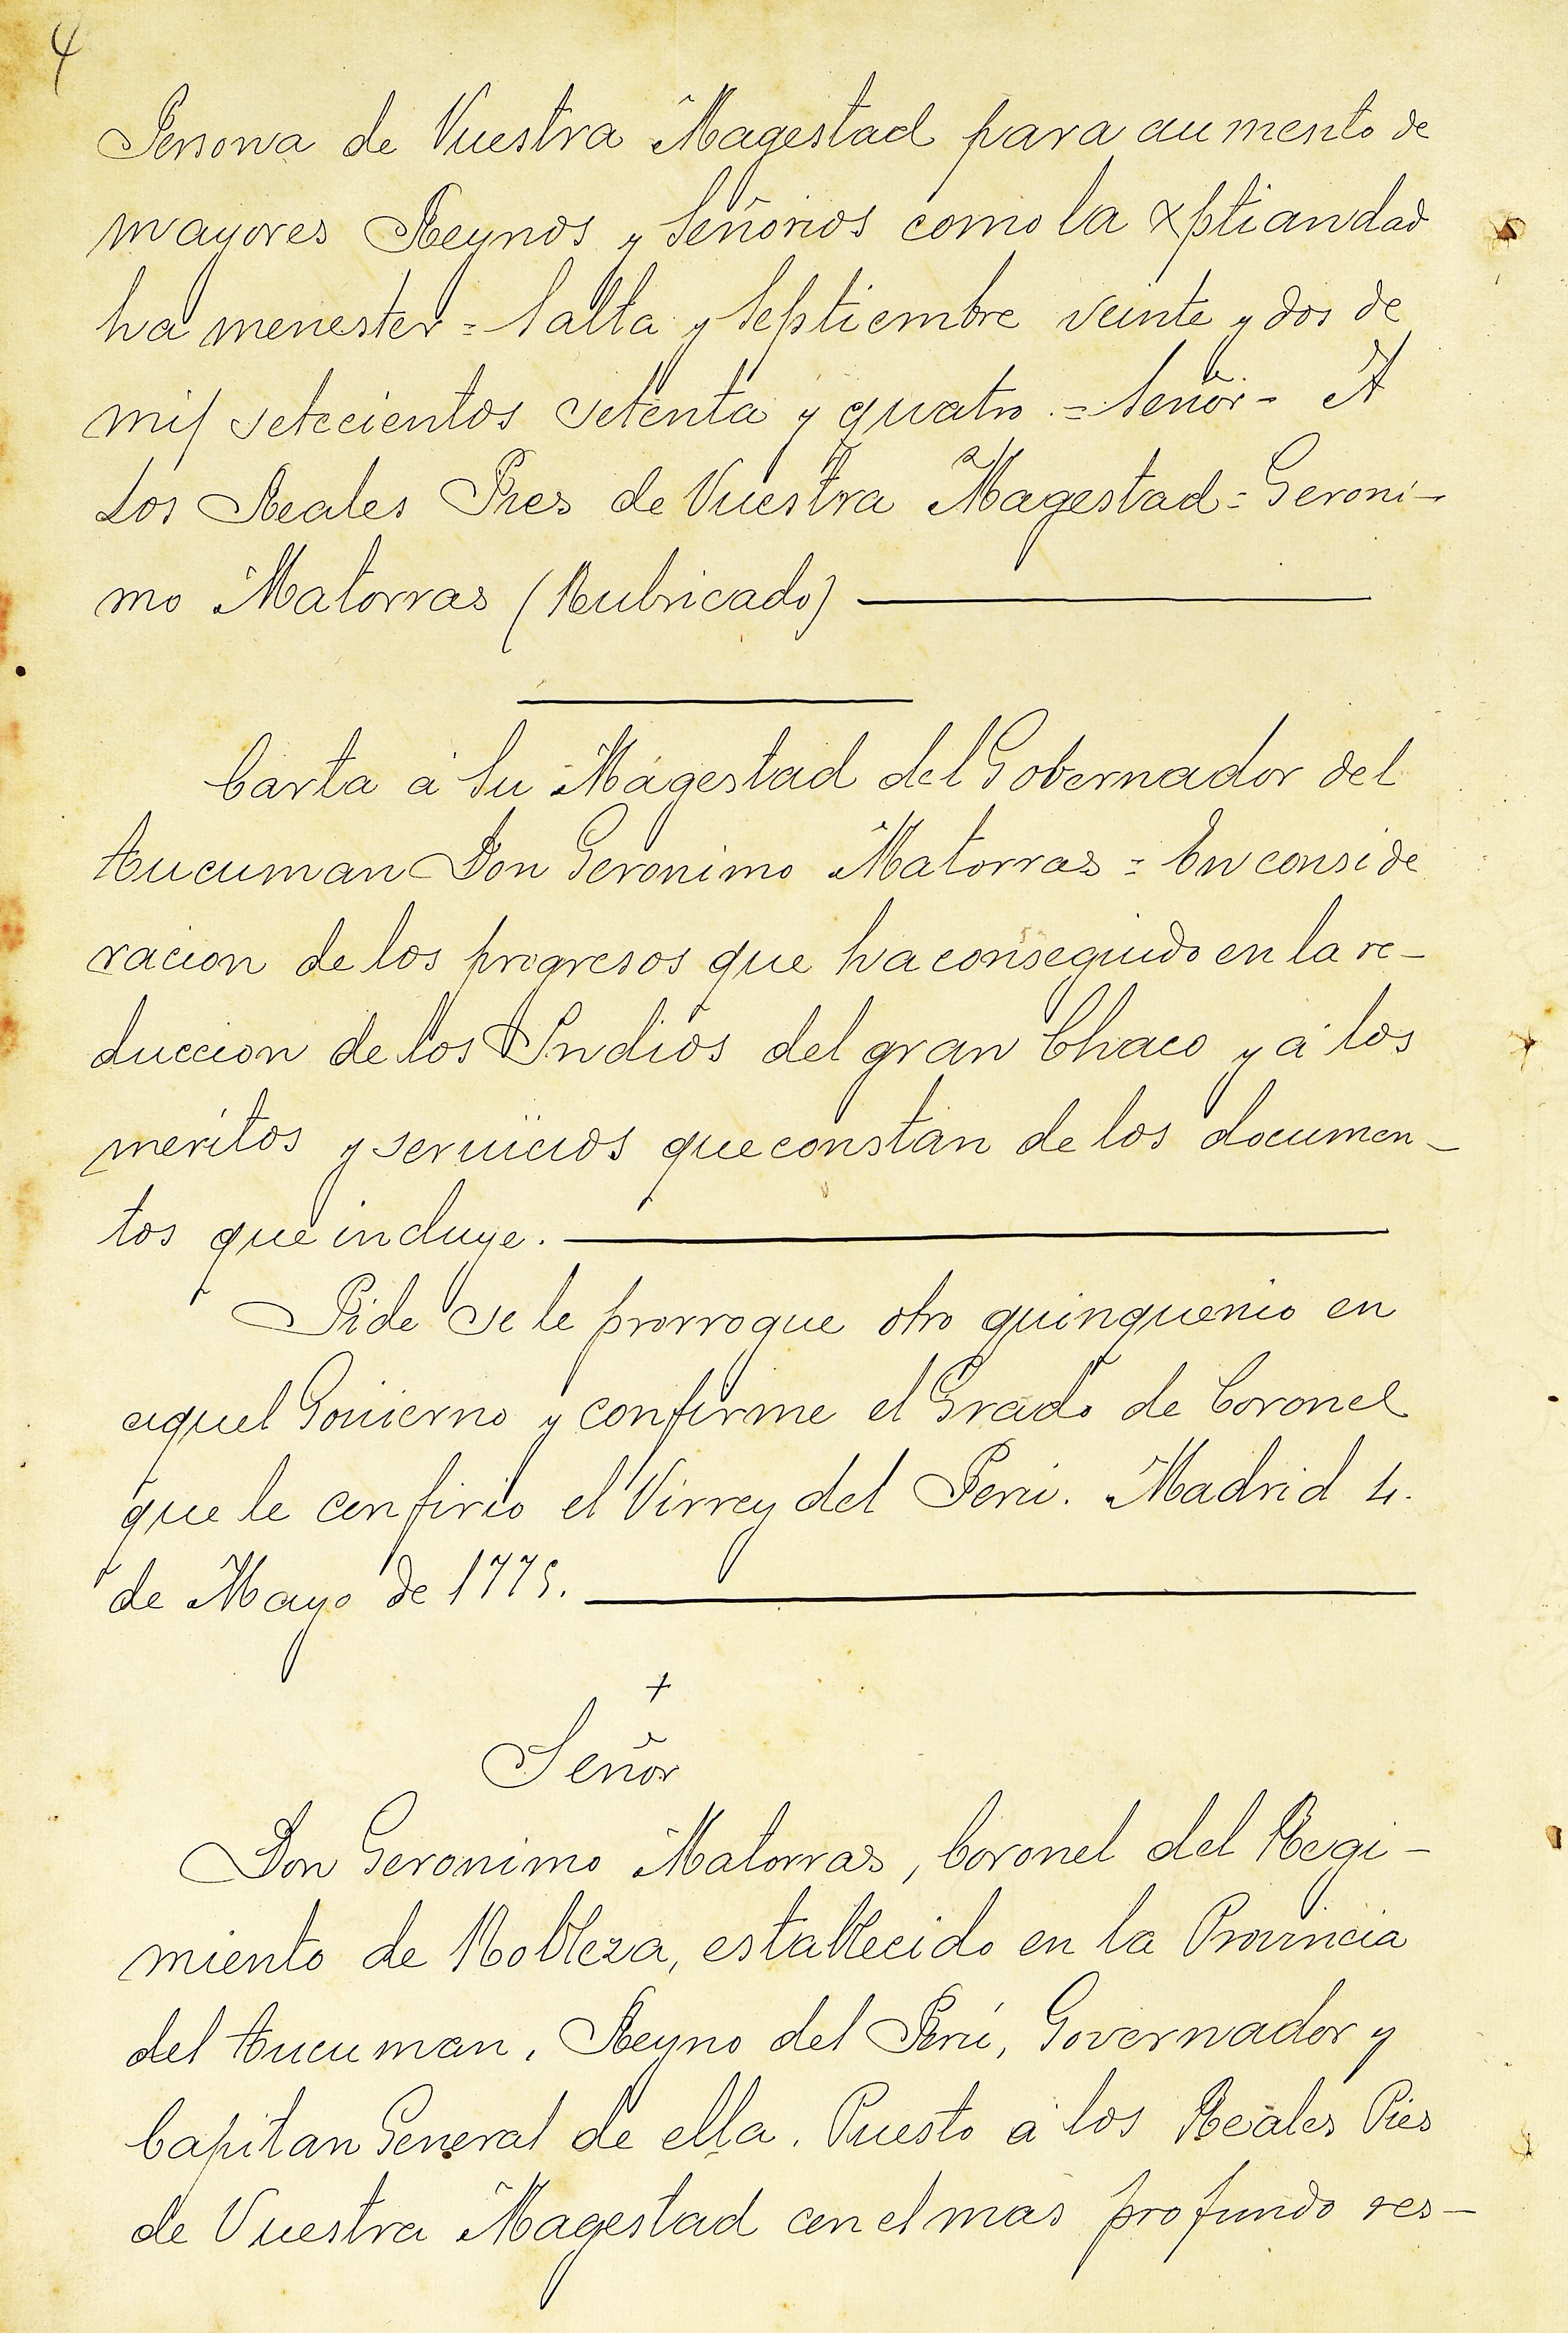 4
Persona de Vuestra Magestad para aumento de
mayores Reynos y Señorios como la xptiandad
ha menester = Salta y Septiembre veinte y dos de
mil setecientos setenta y quatro . = Señor - A
Los Reales Pies de Vuestra Magestad = Geroni-
mo Matorras (Rubricado)
Carta á Su Magestad del Gobernador del
Tucuman Don Geronimo Matorras = En conside
racion de los progresos que ha conseguido en la re-
duccion de los Indios del gran Chaco y á los
meritos y seruicios que constan de los documen-
tos que incluye.
Pide se le prorrogue otro quinquenio en
aquel Gouierno y confirme el Grado de Coronel
que le confirio el Virrey del Perú. Madrid 4.
de Mayo de 1775.
+
Señor
Don Geronimo Matorras, Coronel del Regi-
miento de Nobleza, establecido en la Provincia
del Tucuman, Reyno del Perú, Governador y
Capitan General de ella. Puesto á los Reales Pies
de Vuestra Magestad con el mas profundo res-